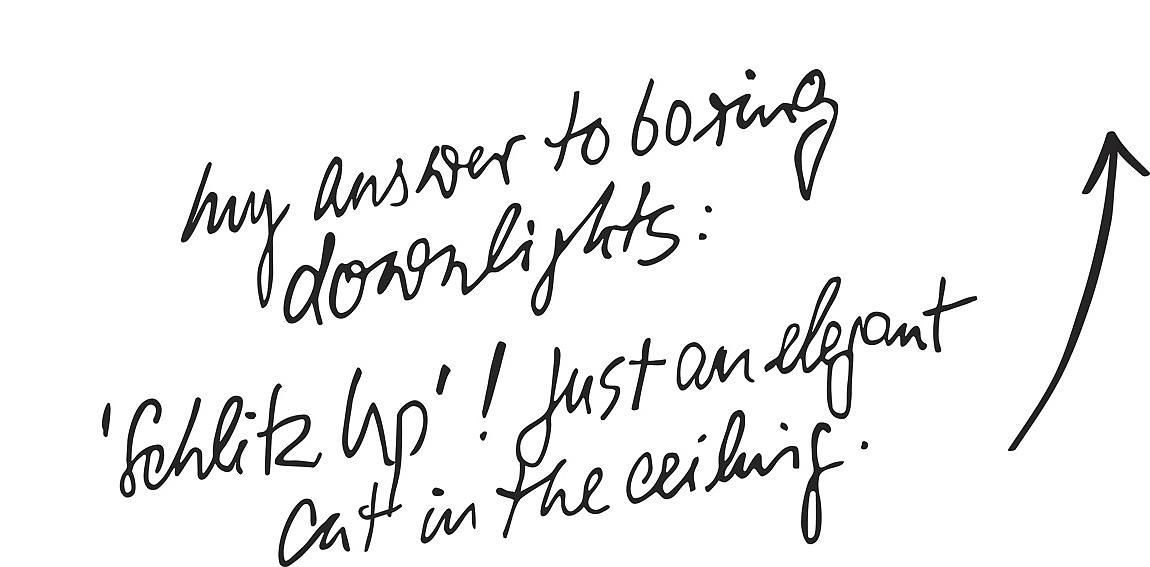 my answer to boring
downlights:
'Schlitz Up'! Just an elegant
cut in the ceiling.